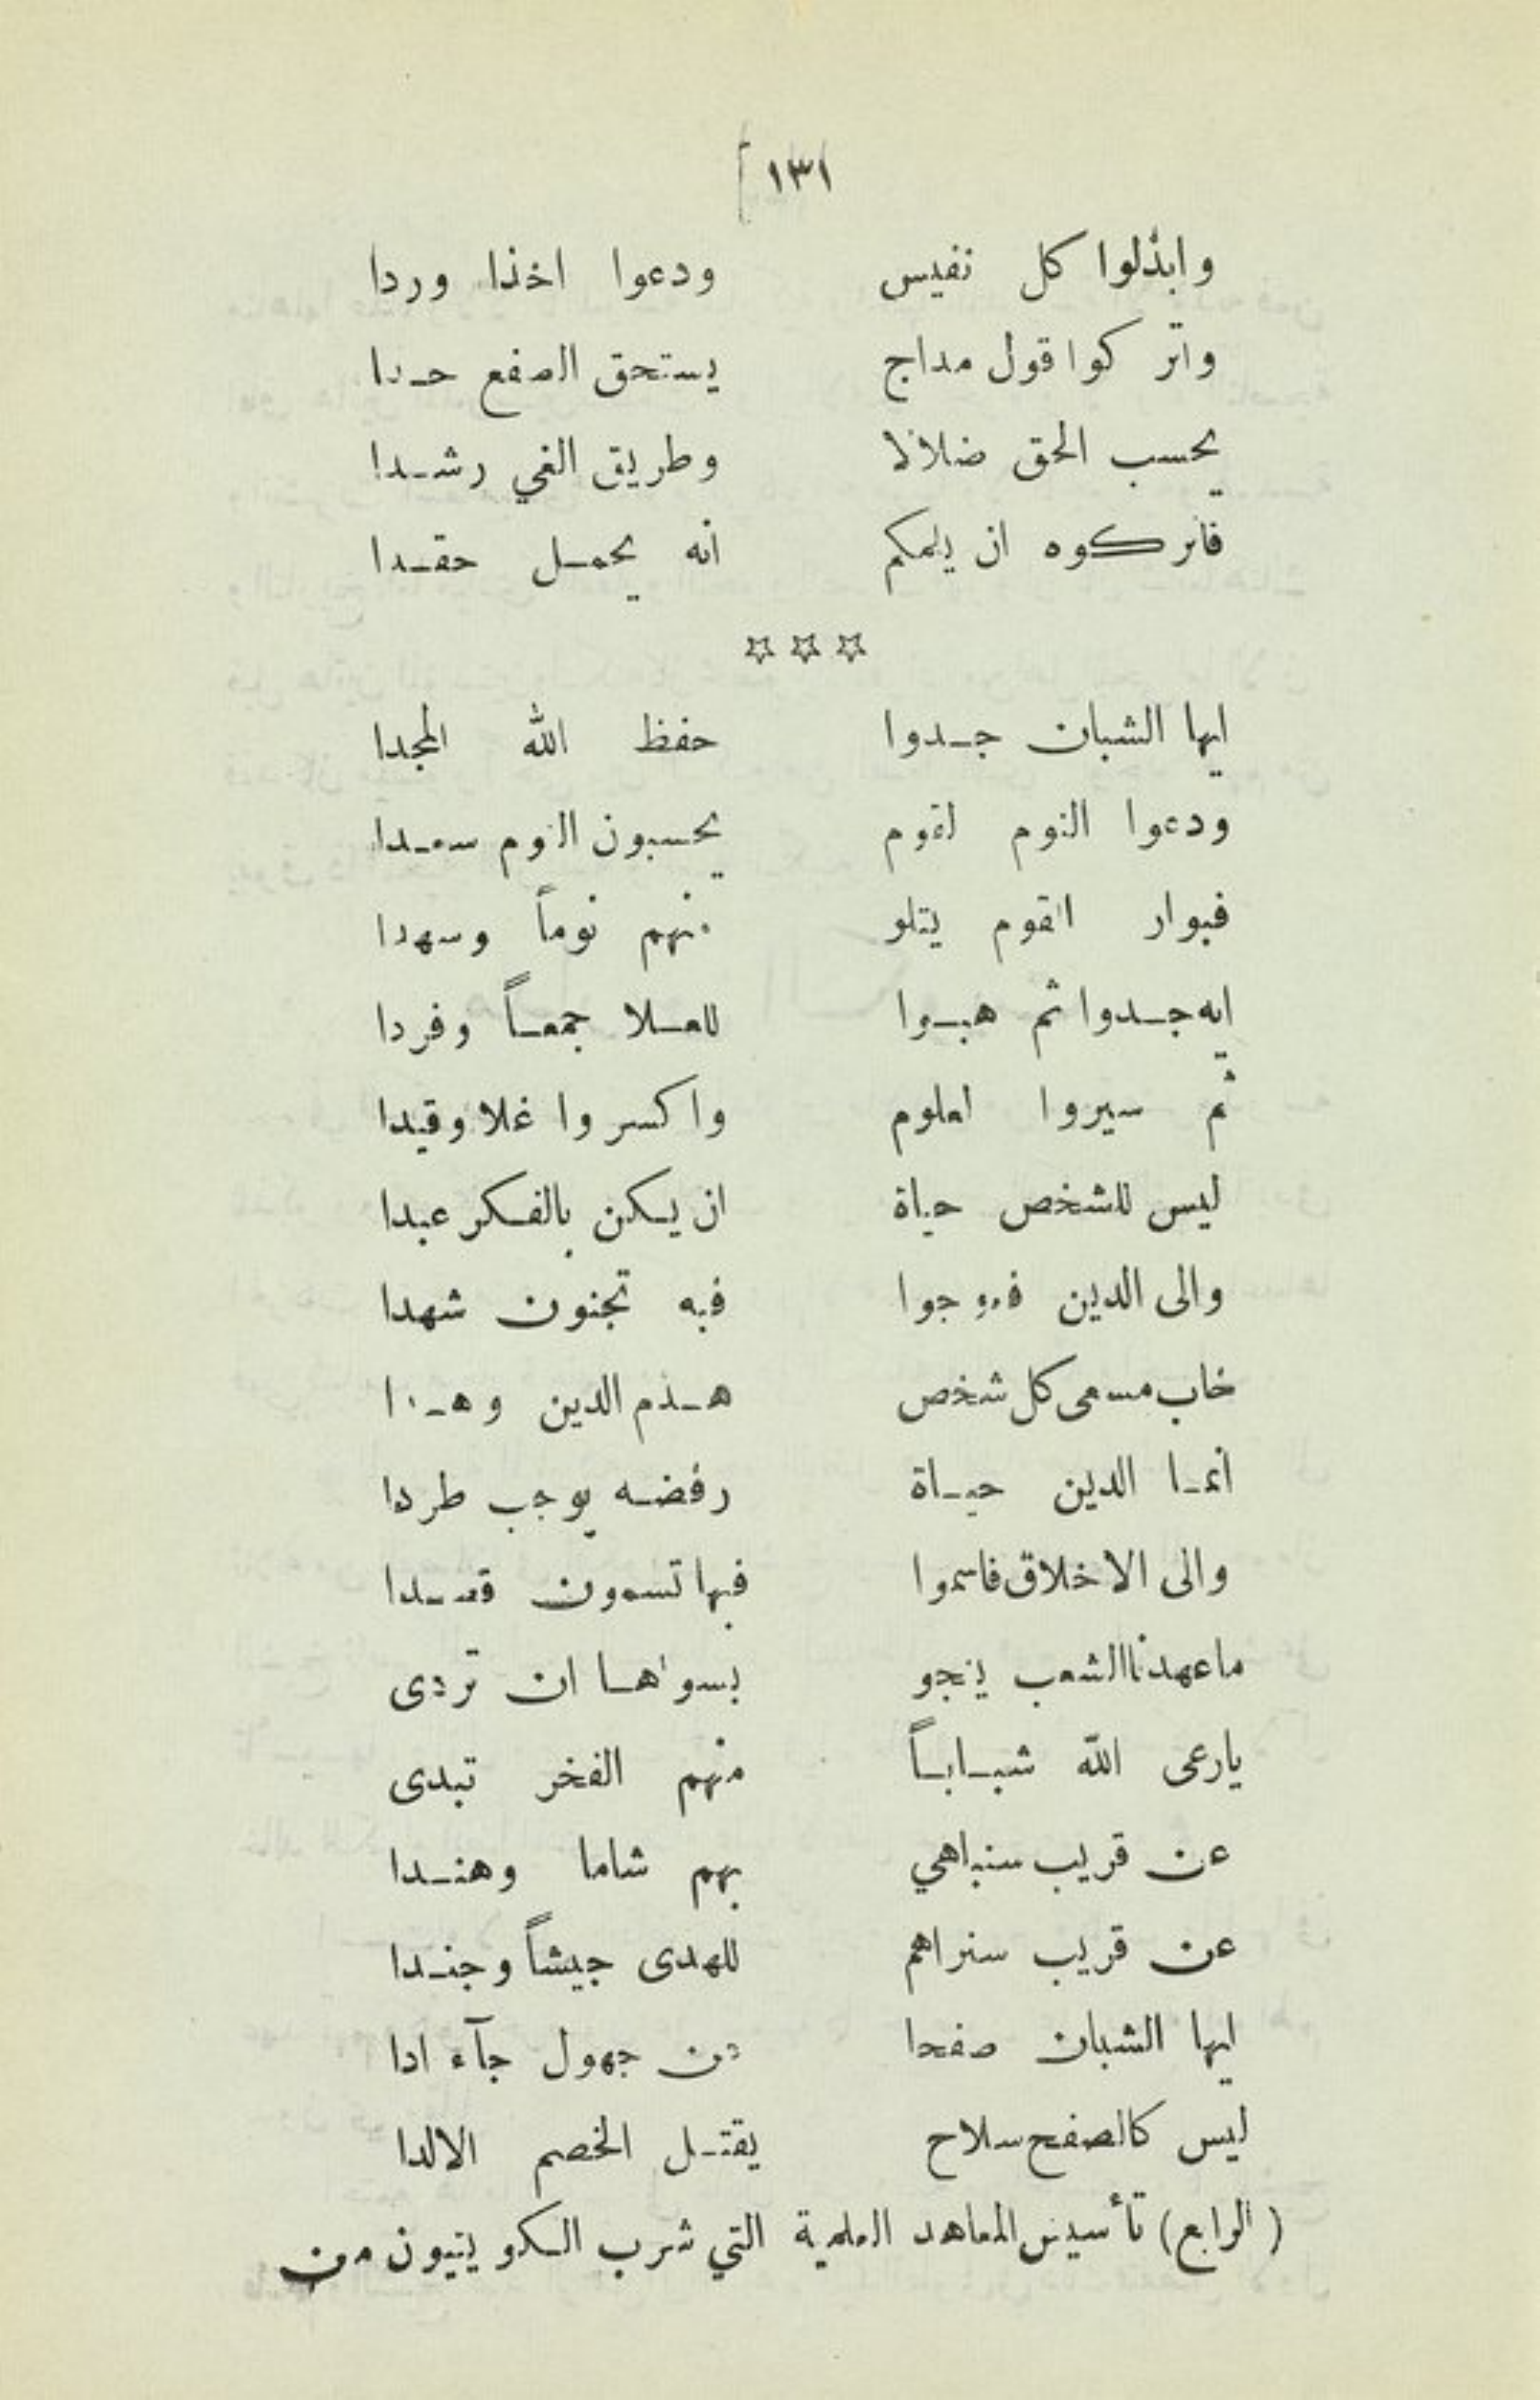 ١٣١
وابذلوا كل نفيس ودعوا اخذا وردا
واتركوا قول مداج يستحق الصفع حدا
يحسب الحق ضلالا وطريق الغي رشدا
فاتركوه ان يلمكم انه يحمل حقدا
☆☆☆
ايها الشبان جدوا حفظ الله المجدا
ودعوا النوم لقوم يحسبون النوم سعدا
فبوار القوم يتلو منهم نوماً وسهدا
ايه جدوا ثم هبوا للعلا جمعاً وفردا
ثم سيروا لعلوم واكسروا غلا وقيدا
ليس للشخص حياة ان يكن بالفكر عبدا
والى الدين فعوجوا فبه تجنون شهدا
خاب مسعى كل شخص هدم الدين وهدا
انما الدين حياة رفضه يوجب طردا
والى الاخلاق فاسموا فبها تسمون قصدا
ما عهدنا الشعب ينجو بسواها ان تردى
يارعى الله شباباً منهم الفخر تبدى
عن قريب سنباهي بهم شاما وهندا
عن قريب سنراهم للهدى جيشاً وجندا
ايها الشبان صفحا عن جهول جآء ادا
ليس كالصفح سلاح يقتل الخصم الالدا
(الرابع) تأسيس المعاهد العلمية التي شرب الكويتيون من